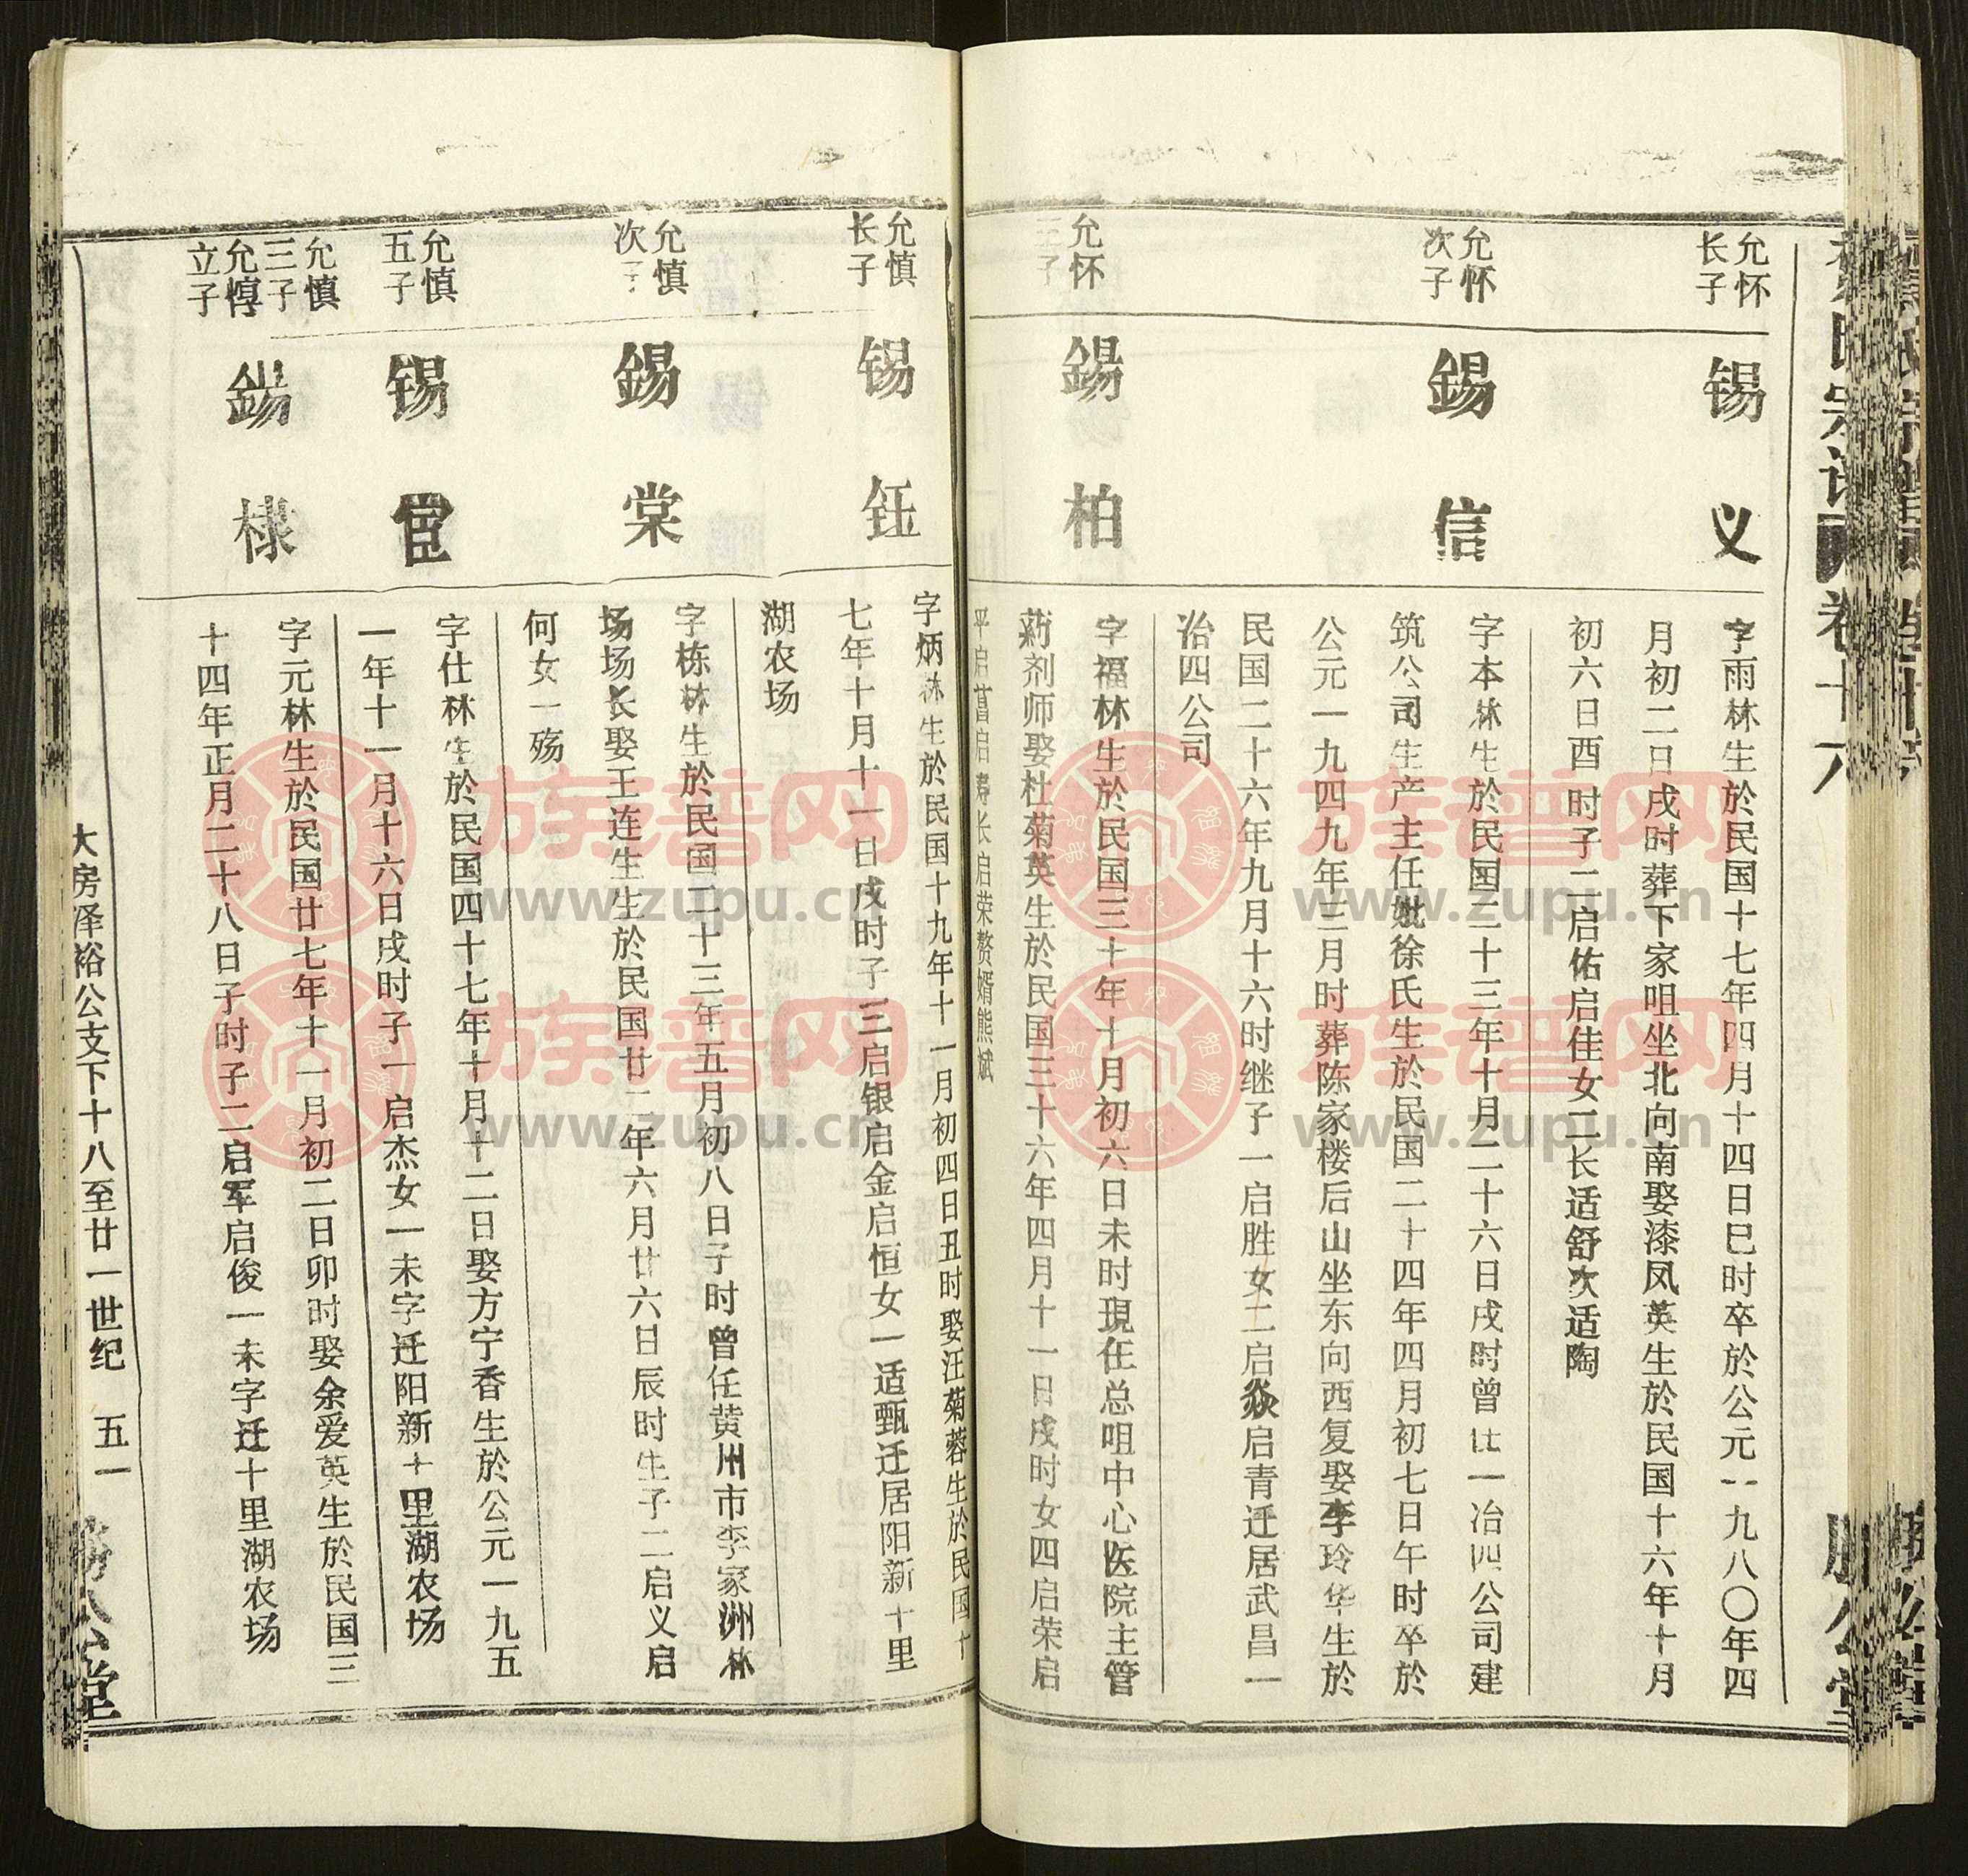 氏宗谱 卷十六
允怀
长子
锡义
字雨林生於民国十七年四月十四日巳时卒於公元一九八〇年四
月初二日戌时葬下家咀坐北向南娶漆凤英生於民国十六年十月
初六日酉时子二启佑启佳女二长适舒次适陶
允怀
次子
錫信
字本林生於民国二十三年十月二十六日戌时曾任一冶四公司建
筑公司生产主任妣徐氏生於民国二十四年四月初七日午时卒於
公元一九四九年三月时葬陈家楼后山坐东向西复娶李玲华生於
民国二十六年九月十六时继子一启胜女二启焱启青迁居武昌一
冶四公司
允怀
三子
錫柏
字福林生於民国三十年十月初六日未时現在总咀中心医院主管
药剂师娶杜菊英生於民国三十六年四月十一日戌时女四启荣启
平启菖启寿长启荣赘婿熊斌
允慎
长子
锡钰
字炳林生於民国十九年十一月初四日丑时娶汪菊蓉生於民国十
七年十月十一日戌时子三启银启金启恒女一适甄迁居阳新十里
湖农场
允慎
次子
錫棠
字栋林生於民国二十三年五月初八日子时曾任黄州市李家洲林
场场长娶王连生生於民国廿二年六月廿六日辰时生子二启义启
何女一殇
允慎
五子
锡官
字仕林生於民国四十七年十月十二日娶方宁香生於公元一九五
一年十一月十六日戌时子一启杰女一未字迁阳新十里湖农场
允慎
三子
允惇
立子
錫棣
字元林生於民国廿七年十一月初二日卯时娶余爱英生於民国三
十四年正月二十八日子时子二启军启俊一未字迁十里湖农场
大房泽裕公支下十八至廿一世纪 五一
公堂
族谱网
www.zupu.cn
族谱网
www.zupu.cn
族谱网
www.zupu.cn
族谱网
www.zupu.cn